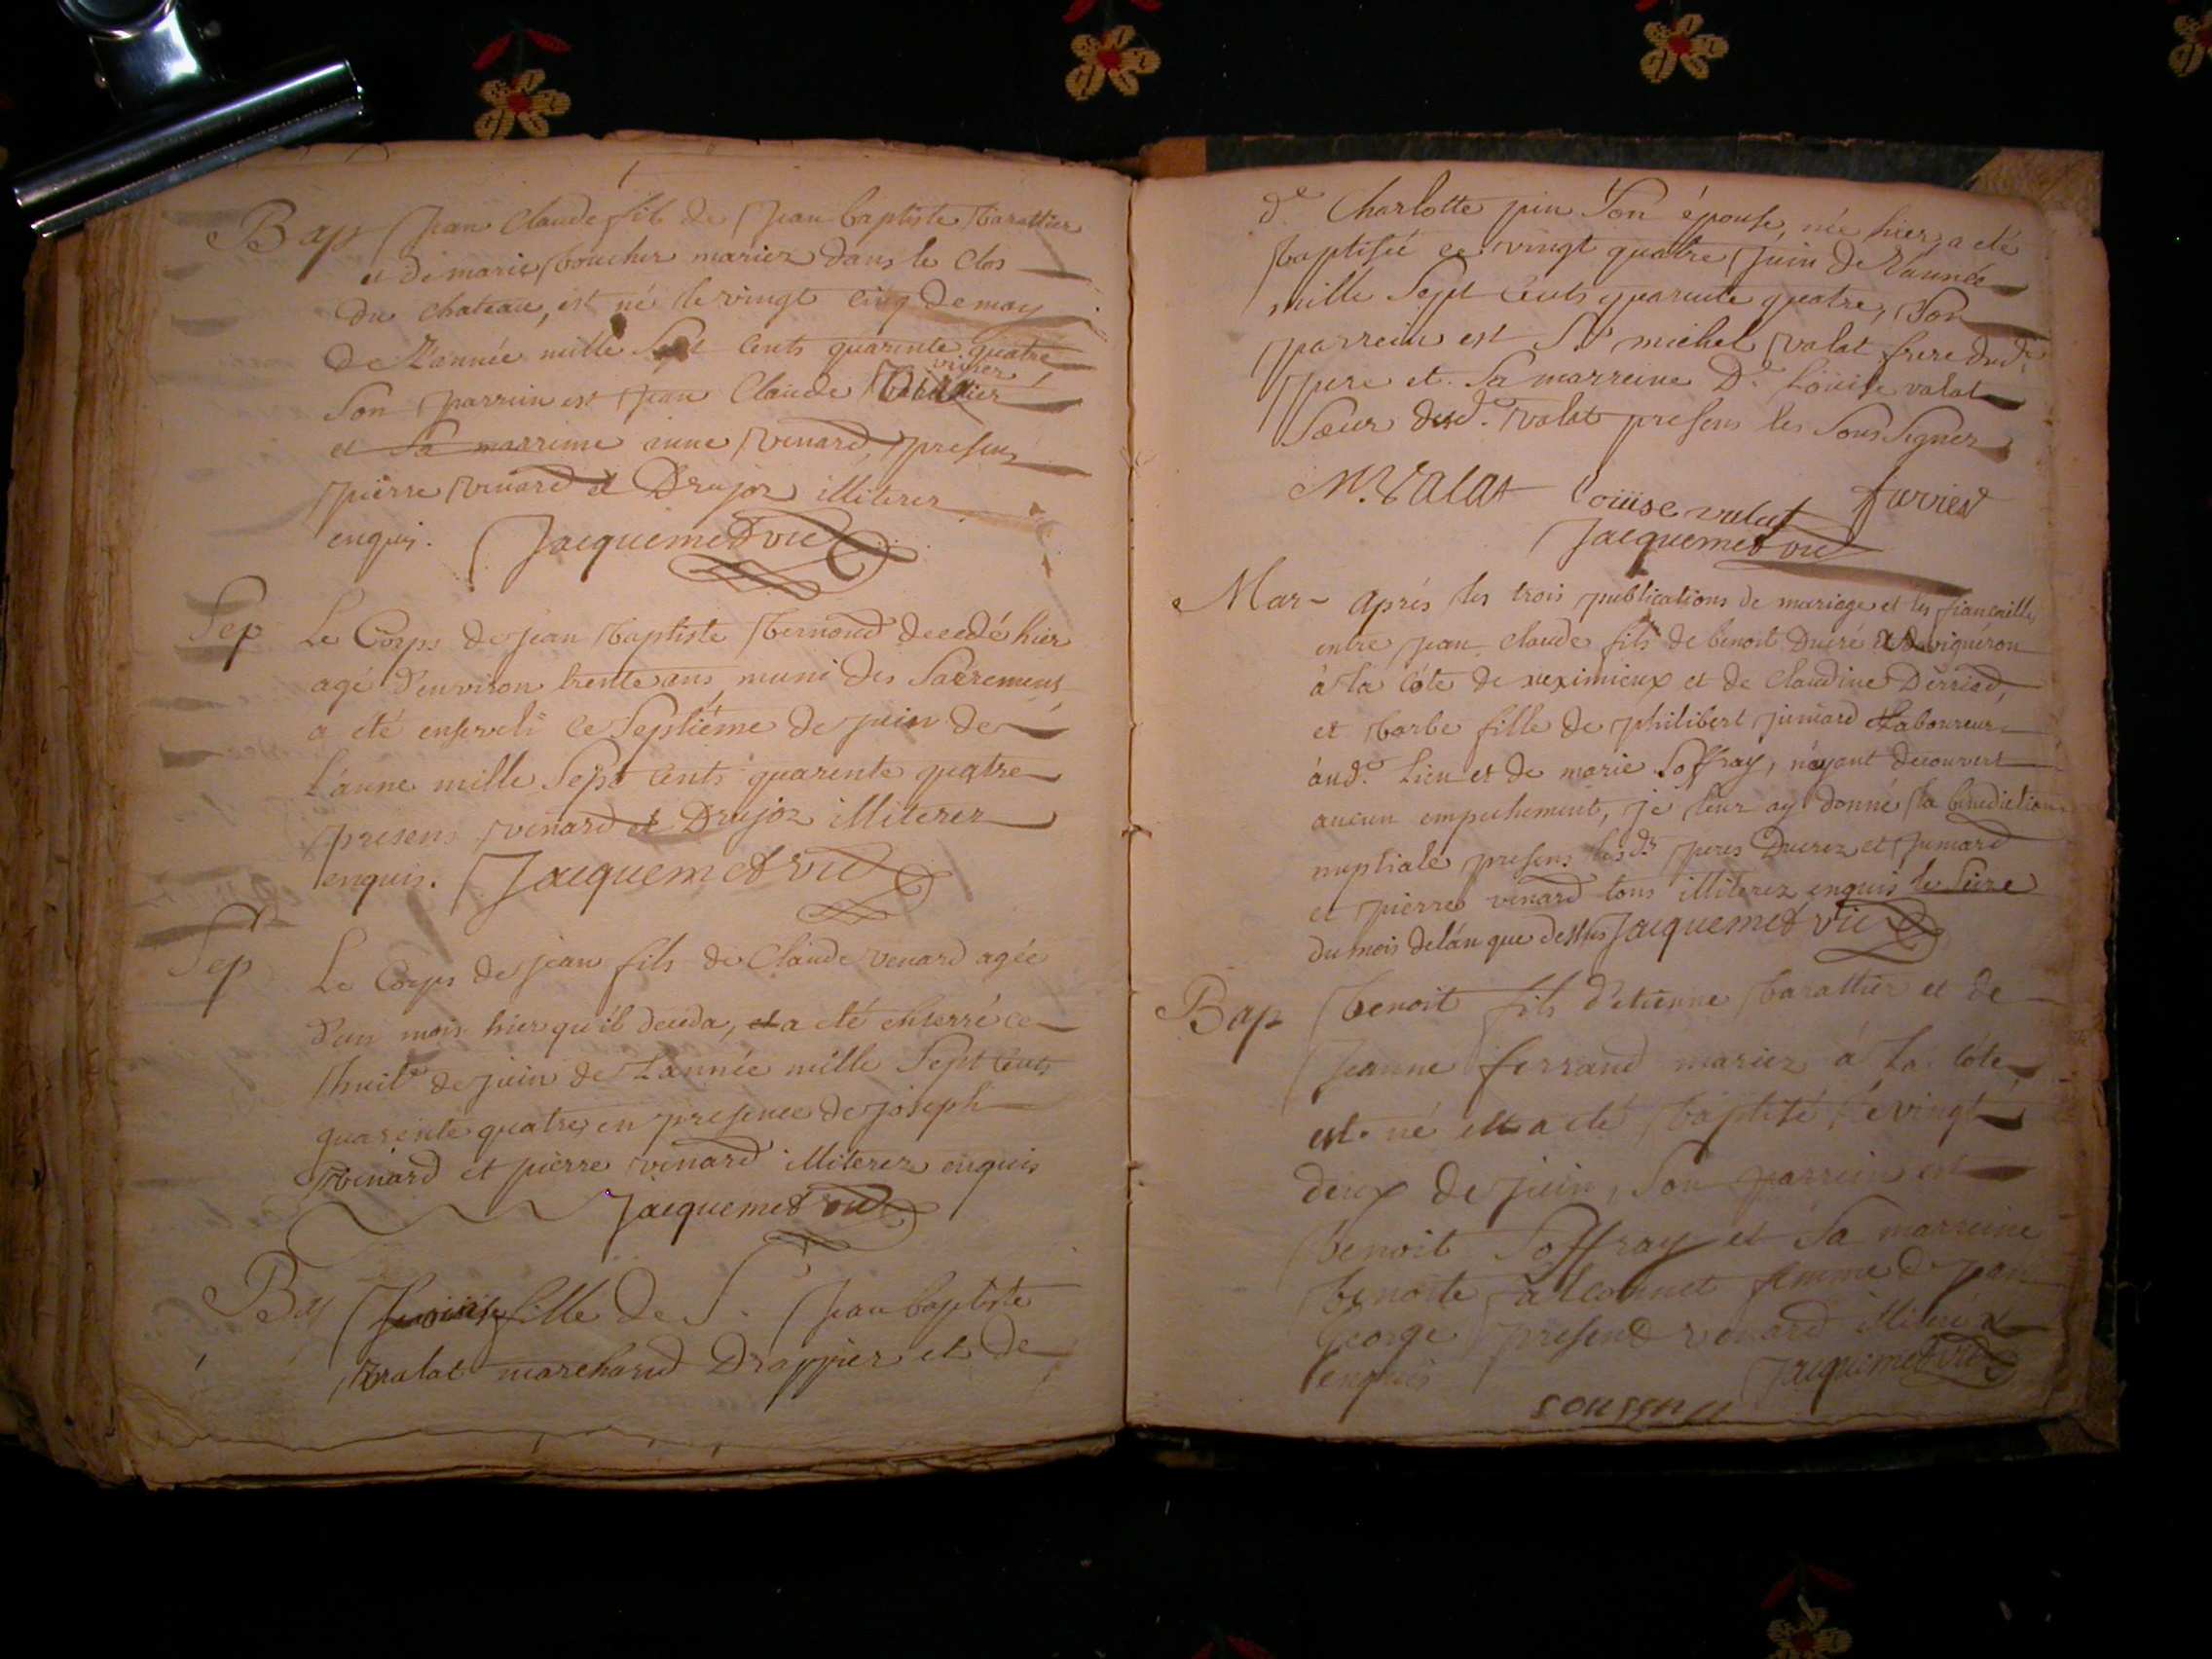 Bap Jean Claude fils de Jean baptiste barattier
et de marie boucher mariez dans le clos
du chateau, est né le vingt cinq de may
de L'année mille Sept cents quarente quatre
Son parrein est Jean Claude
et Sa marreine anne venard, presens
pierre venard et Drujoz illiterez
enquis. Jacquemet vic
Sep Le Corps de jean baptiste bernoud decedé hier
agé d'environ trente ans, muni des Sacremens
a eté enseveli ce Septiéme de juin de
L'anne mille Sept cents quarente quatre
presens venard et Drujoz illiterez
enquis. Jacquemet vic
Sep Le Corps de jean fils de Claude venard agée
d'un mois hier qu'il deceda, a eté enterré ce
huit.e de juin de L'année mille Sept cents
quarente quatre, en presence de joseph
venard et pierre venard illiterez enquis
Jacquemet vic
Bap fille de S. Jean baptiste
valat marchand Drappier et de
d.e Charlotte juin Son épouse, née hier, a eté
baptisée ce vingt quatre juin de L'année
mille Sept cents quarente quatre, Son
parrein est S.r michel valat frere dud.
pere et Sa marreine D.e Loüise valat
Sœur dud. valat presens les Sous Signez
M. Valat Loüise valat farviet
Jacquemet vic
Mar- aprés les trois publications de mariage et les fiancailles
entre jean claude fils de benoit Ducré vigneron
à la côte de meximieux et de claudine Derriad,
et barbe fille de philibert jumard Laboureur
aud. Lieu et de marie Soffray, n'ayant decouvert
aucun empechement, je leur ay donné la benediction
nuptiale, presens lesd.s peres Ducrez et jumard
et pierre venard tous illiterez enquis le Seize
du mois de l'an que dessus Jacquemet vic
Bap benoit fils d'etienne barattier et de
Jeanne ferrand mariez à la côte
est né et a eté baptisé le vingt
deux de juin, Son parrein est
benoit Soffray et Sa marreine
benoite falconnet femme de jean
George presend venard illiteréz
enquis Jacquemet vic